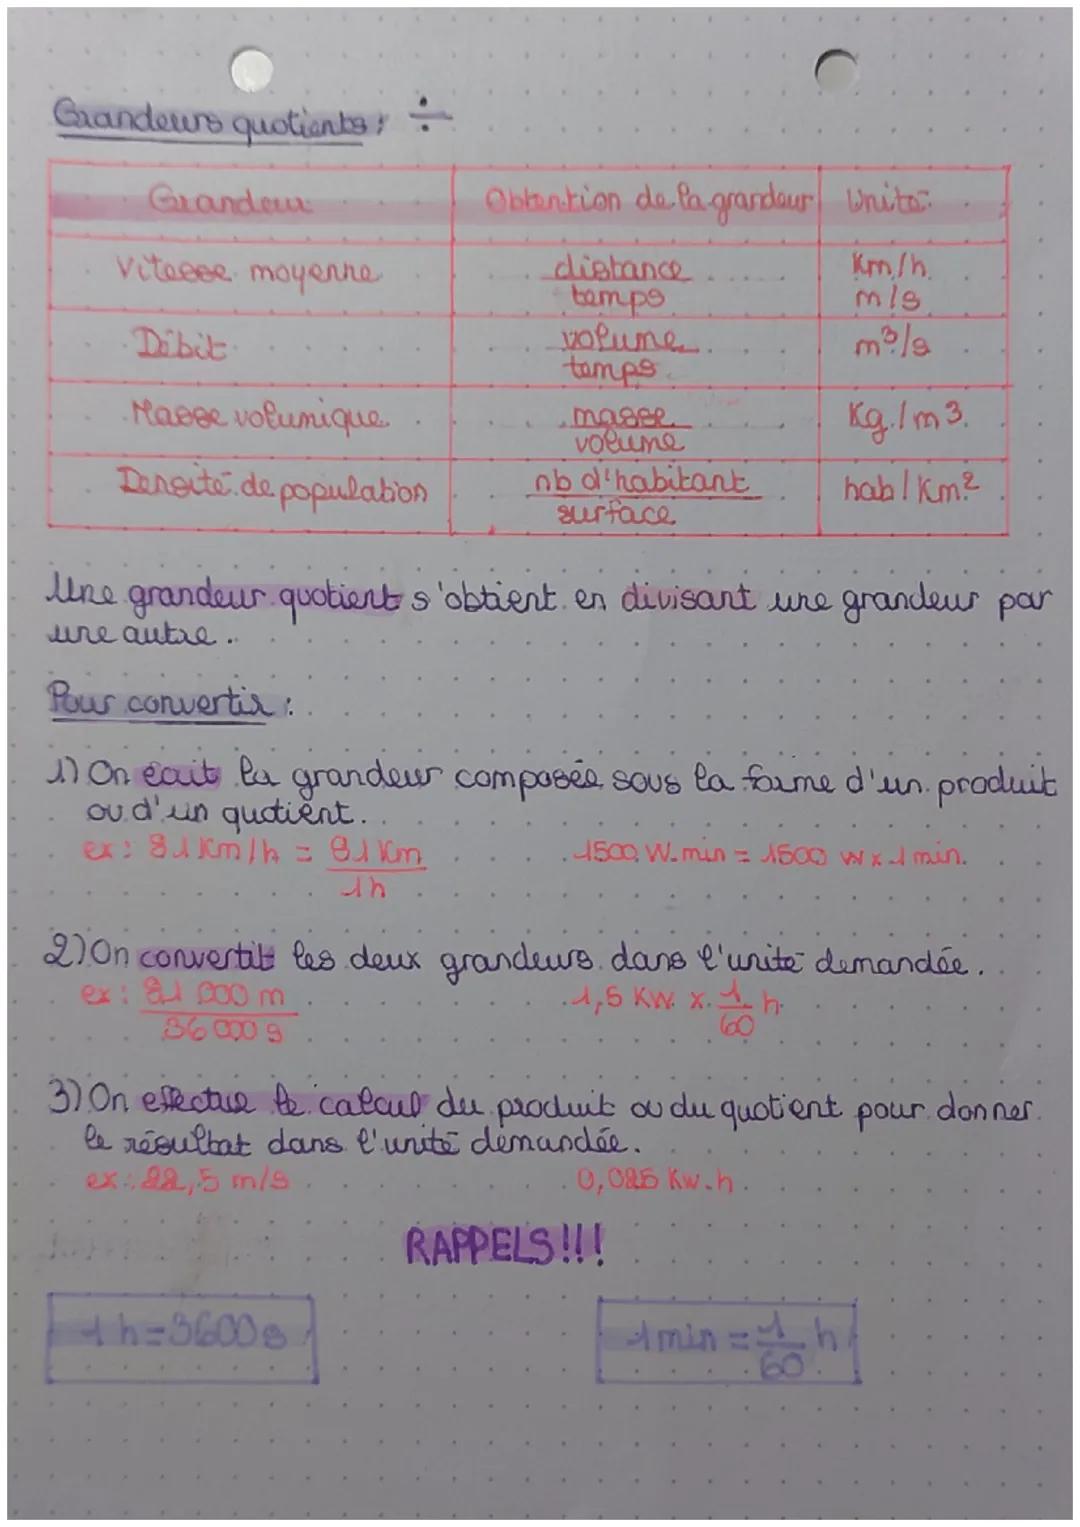 Grandeurs quotients : ÷
Grandeur Obtention de la grandeur Unité
Vitesse moyenne distance Km/h
temps m/s
Débit volume m³/s
temps
Masse volumique masse Kg/m3
volume
Densité de population nb d'habitant hab/Km²
surface
Une grandeur quotient s'obtient en divisant une grandeur par
une autre.
Pour convertir :
1) On écrit la grandeur composée sous la forme d'un produit
ou d'un quotient.
ex : 81 Km/h = 81 Km 1500 W.min = 1500 W x 1 min.
1h
2) On convertit les deux grandeurs dans l'unité demandée.
ex : 81 000 m 1,5 KW x 1 h
36000 s 60
3) On effectue le calcul du produit ou du quotient pour donner
le résultat dans l'unité demandée.
ex : 22,5 m/s 0,025 Kw.h
RAPPELS!!!
1 h = 3600 s 1 min = 1 h
60